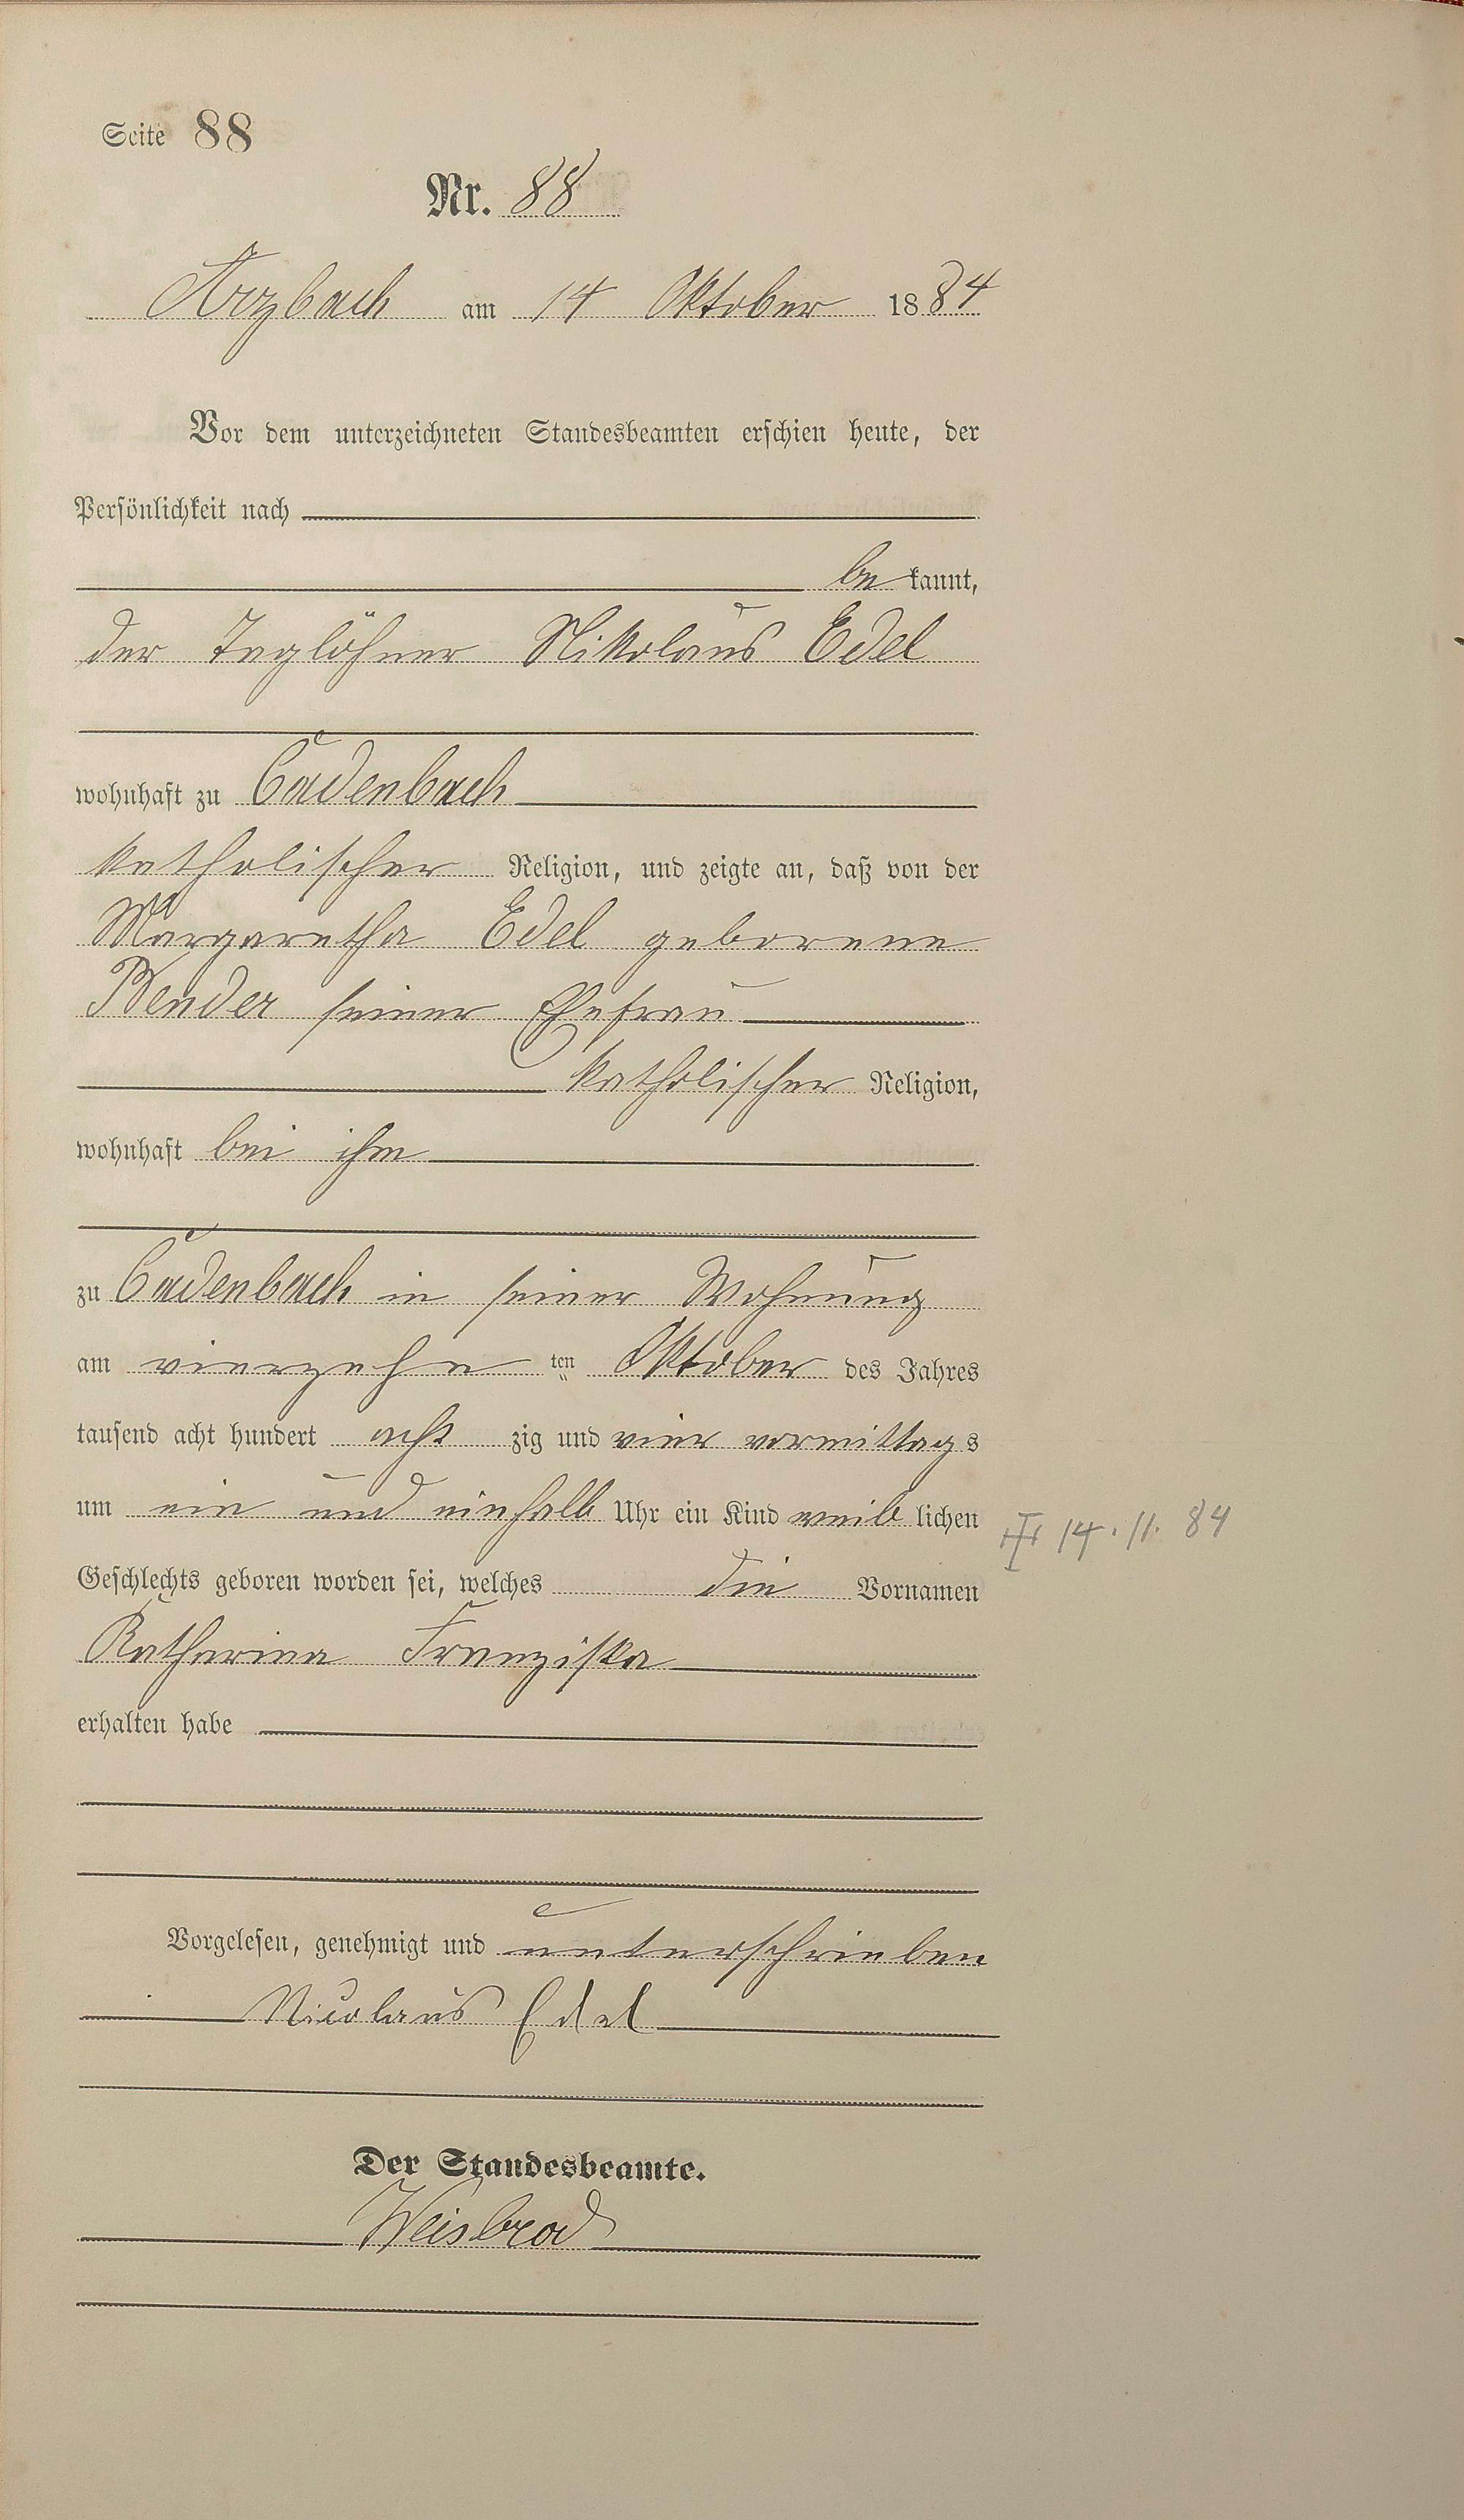 Seite 88
Nr. 88
Arzbach am 14 Oktober 1884
Vor dem unterzeichneten Standesbeamten erschien heute, der
Persönlichkeit nach
bekannt,
der Taglöhner Nikolaus Edel
wohnhaft zu Cadenbach
katholischer Religion, und zeigte an, daß von der
Margaretha Edel geborene
Bender seiner Ehefrau
katholischer Religion,
wohnhaft bei ihm
zu Cadenbach in seiner Wohnung
am vierzehnten Oktober des Jahres
tausend acht hundert achtzig und vier vormittags
um ein und einhalb Uhr ein Kind weiblichen
14.11.84
Geschlechts geboren worden sei, welches die Vornamen
Katharina Franziska
erhalten habe
Vorgelesen, genehmigt und unterschrieben
Nicolaus Edel
Der Standesbeamte.
Weisbrod